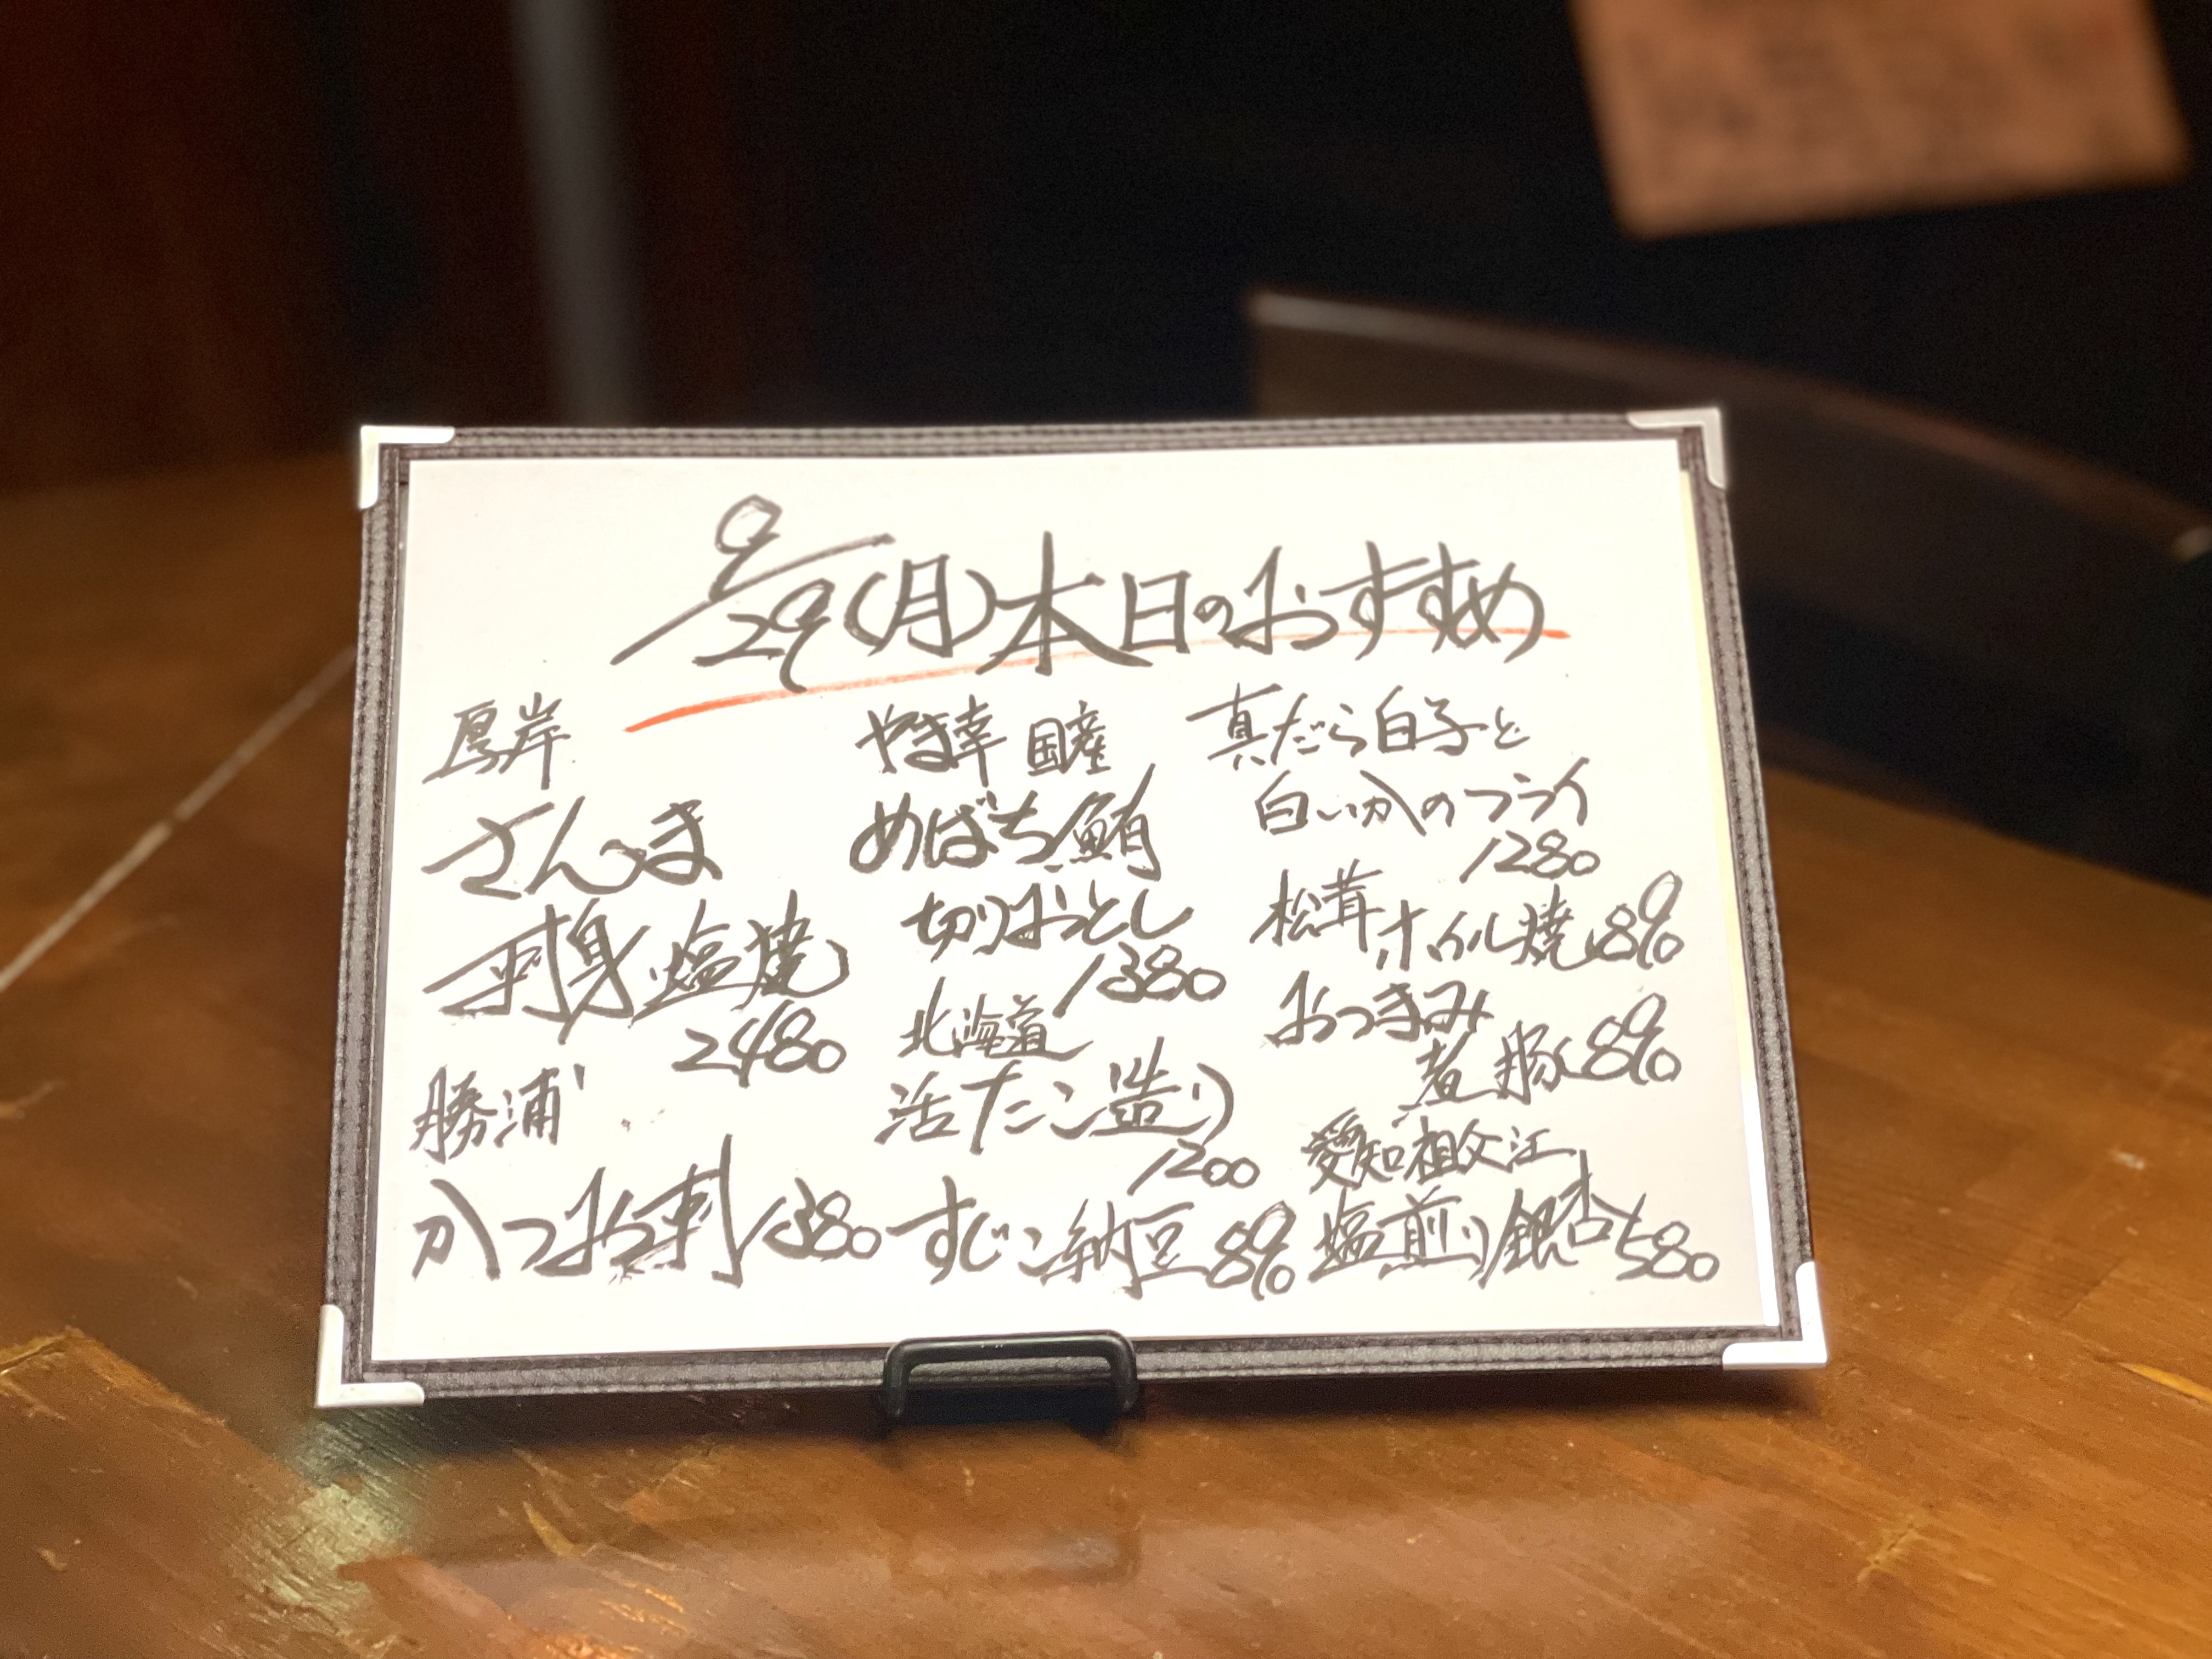 9/29(月)本日のおすすめ
厚岸
さんま
刺身・塩焼
2480
勝浦
かつお刺1380
やま幸 国産
めばち鮪
切りおとし
1380
北海道
活たこ造り
1200
すじこ納豆890
真だら白子と
白いかのフライ
1280
松茸ホイル焼890
おつまみ
煮豚890
愛知祖父江
塩煎り銀杏580